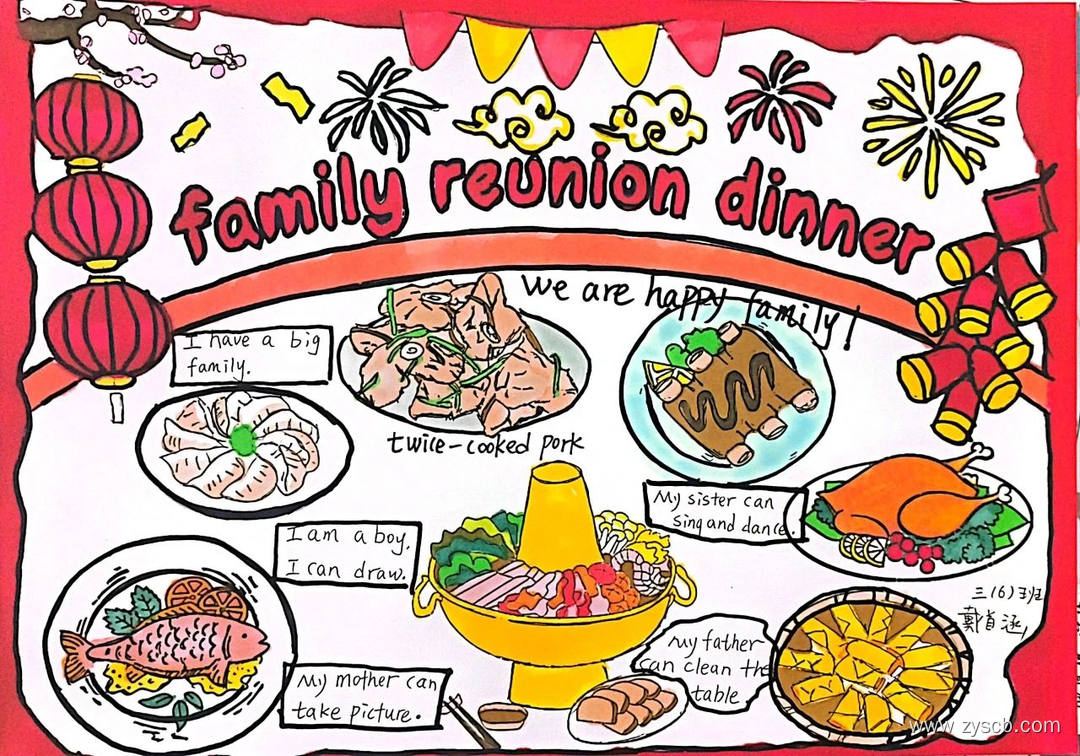 family reunion dinner
We are happy family!
I have a big
family.
twice-cooked pork
My sister can
sing and dance.
I am a boy.
I can draw.
三(6)班
戴肖涵
My father
can clean the
table.
My mother can
take picture.
www.zyscb.com